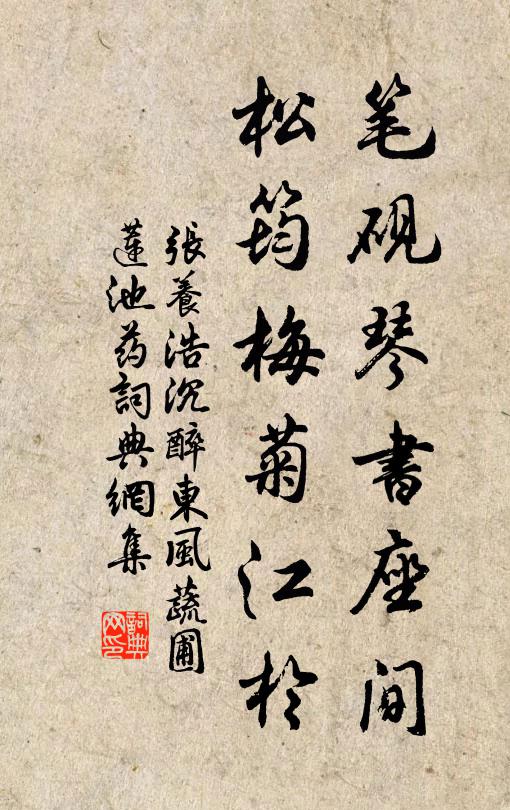 笔硯琴書座間
松筠梅菊江於
張養浩沉醉東風蔬圃
蓮池药詞典網集
詞典
网印